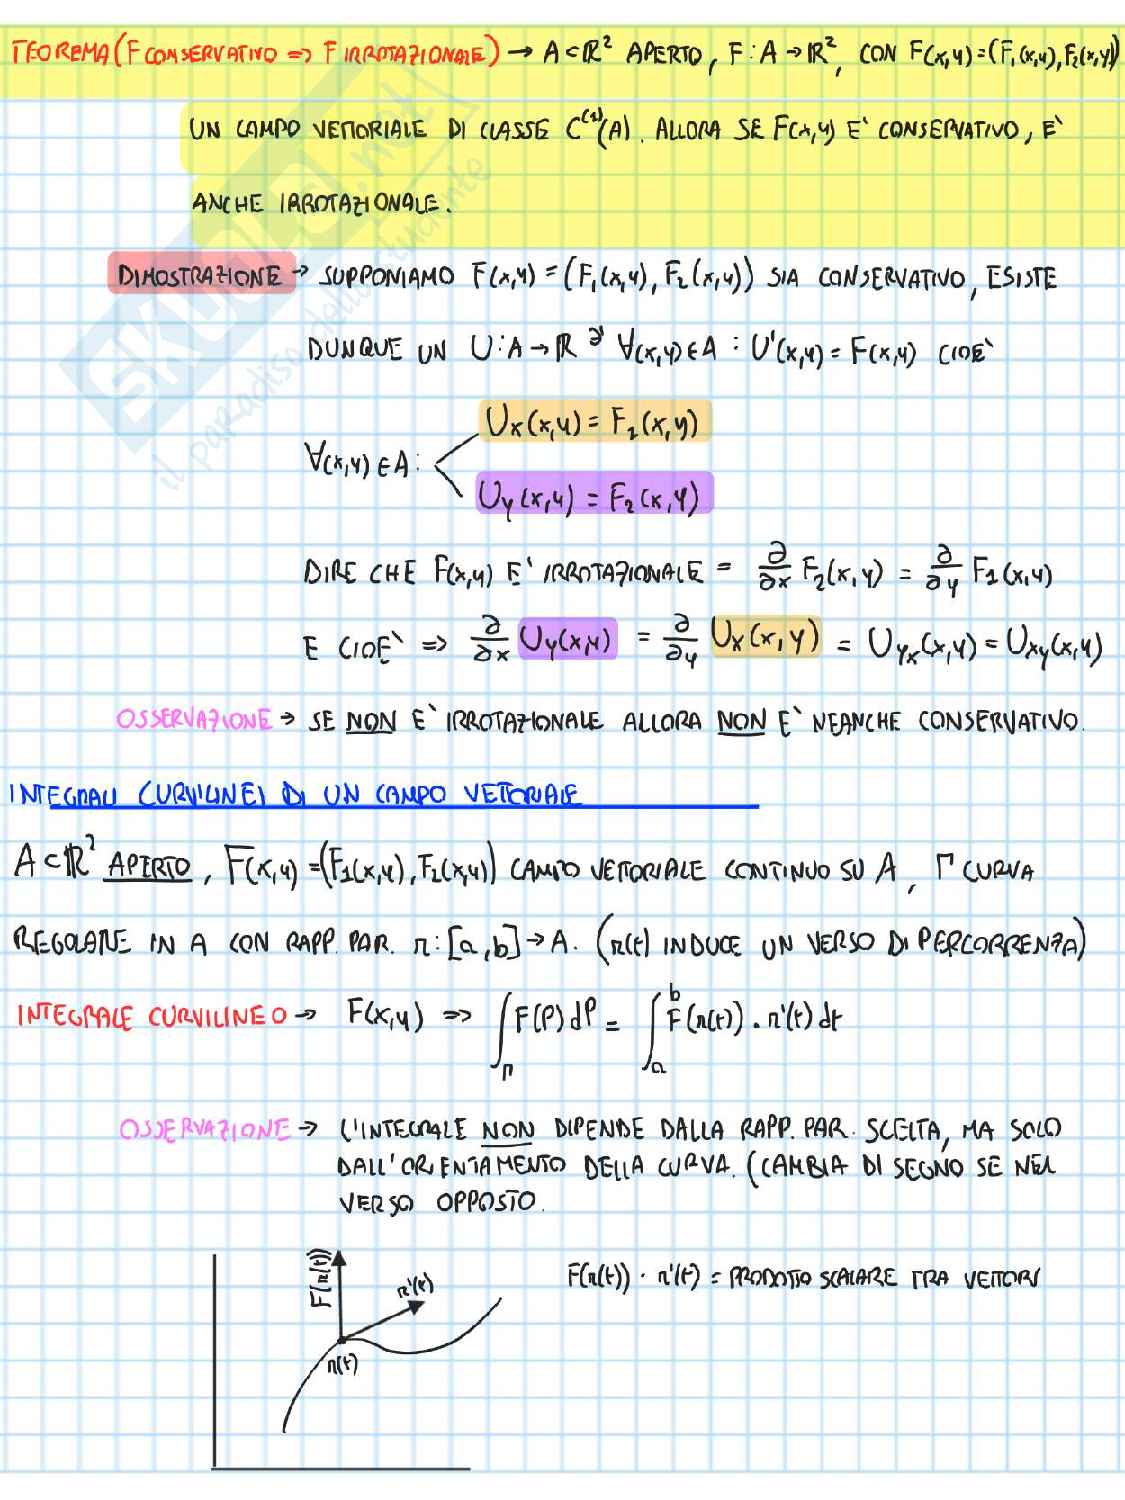 TEOREMA (F CONSERVATIVO => F IRROTAZIONALE) → A⊂ℝ² APERTO, F: A→ℝ², CON F(x,y)=(F₁(x,y),F₂(x,y))
UN CAMPO VETTORIALE DI CLASSE C⁽¹⁾(A). ALLORA SE F(x,y) E` CONSERVATIVO, E`
ANCHE IRROTAZIONALE.
DIMOSTRAZIONE → SUPPONIAMO F(x,y) = (F₁(x,y), F₂(x,y)) SIA CONSERVATIVO, ESISTE
DUNQUE UN U: A→ℝ ∂' ∀(x,y)∈A : U'(x,y) = F(x,y) CIOE`
∀(x,y)∈A:
Ux(x,y) = F₁(x,y)
Uy(x,y) = F₂(x,y)
DIRE CHE F(x,y) E` IRROTAZIONALE = ∂/∂x F₂(x,y) = ∂/∂y F₁(x,y)
E CIOE` => ∂/∂x Uy(x,y) = ∂/∂y Ux(x,y) = Uyx(x,y) = Uxy(x,y)
OSSERVAZIONE → SE NON E` IRROTAZIONALE ALLORA NON E` NEANCHE CONSERVATIVO.
INTEGRALI CURVILINEI DI UN CAMPO VETTORIALE
A⊂ℝ² APERTO, F(x,y) =(F₁(x,y), F₂(x,y)) CAMPO VETTORIALE CONTINUO SU A, Γ CURVA
REGOLARE IN A CON RAPP. PAR. r: [a,b]→A. (r(t) INDUCE UN VERSO DI PERCORRENZA)
INTEGRALE CURVILINEO → F(x,y) => ∫_Γ F(P)dP = ∫_a^b F(r(t)) . r'(t) dt
OSSERVAZIONE → L'INTEGRALE NON DIPENDE DALLA RAPP. PAR. SCELTA, MA SOLO
DALL'ORIENTAMENTO DELLA CURVA. (CAMBIA DI SEGNO SE NEL
VERSO OPPOSTO.
F(r(t)) · r'(t) = PRODOTTO SCALARE TRA VETTORI
F(r(t))
r'(t)
r(t)
SKUOLA.net
il paradiso dello studente